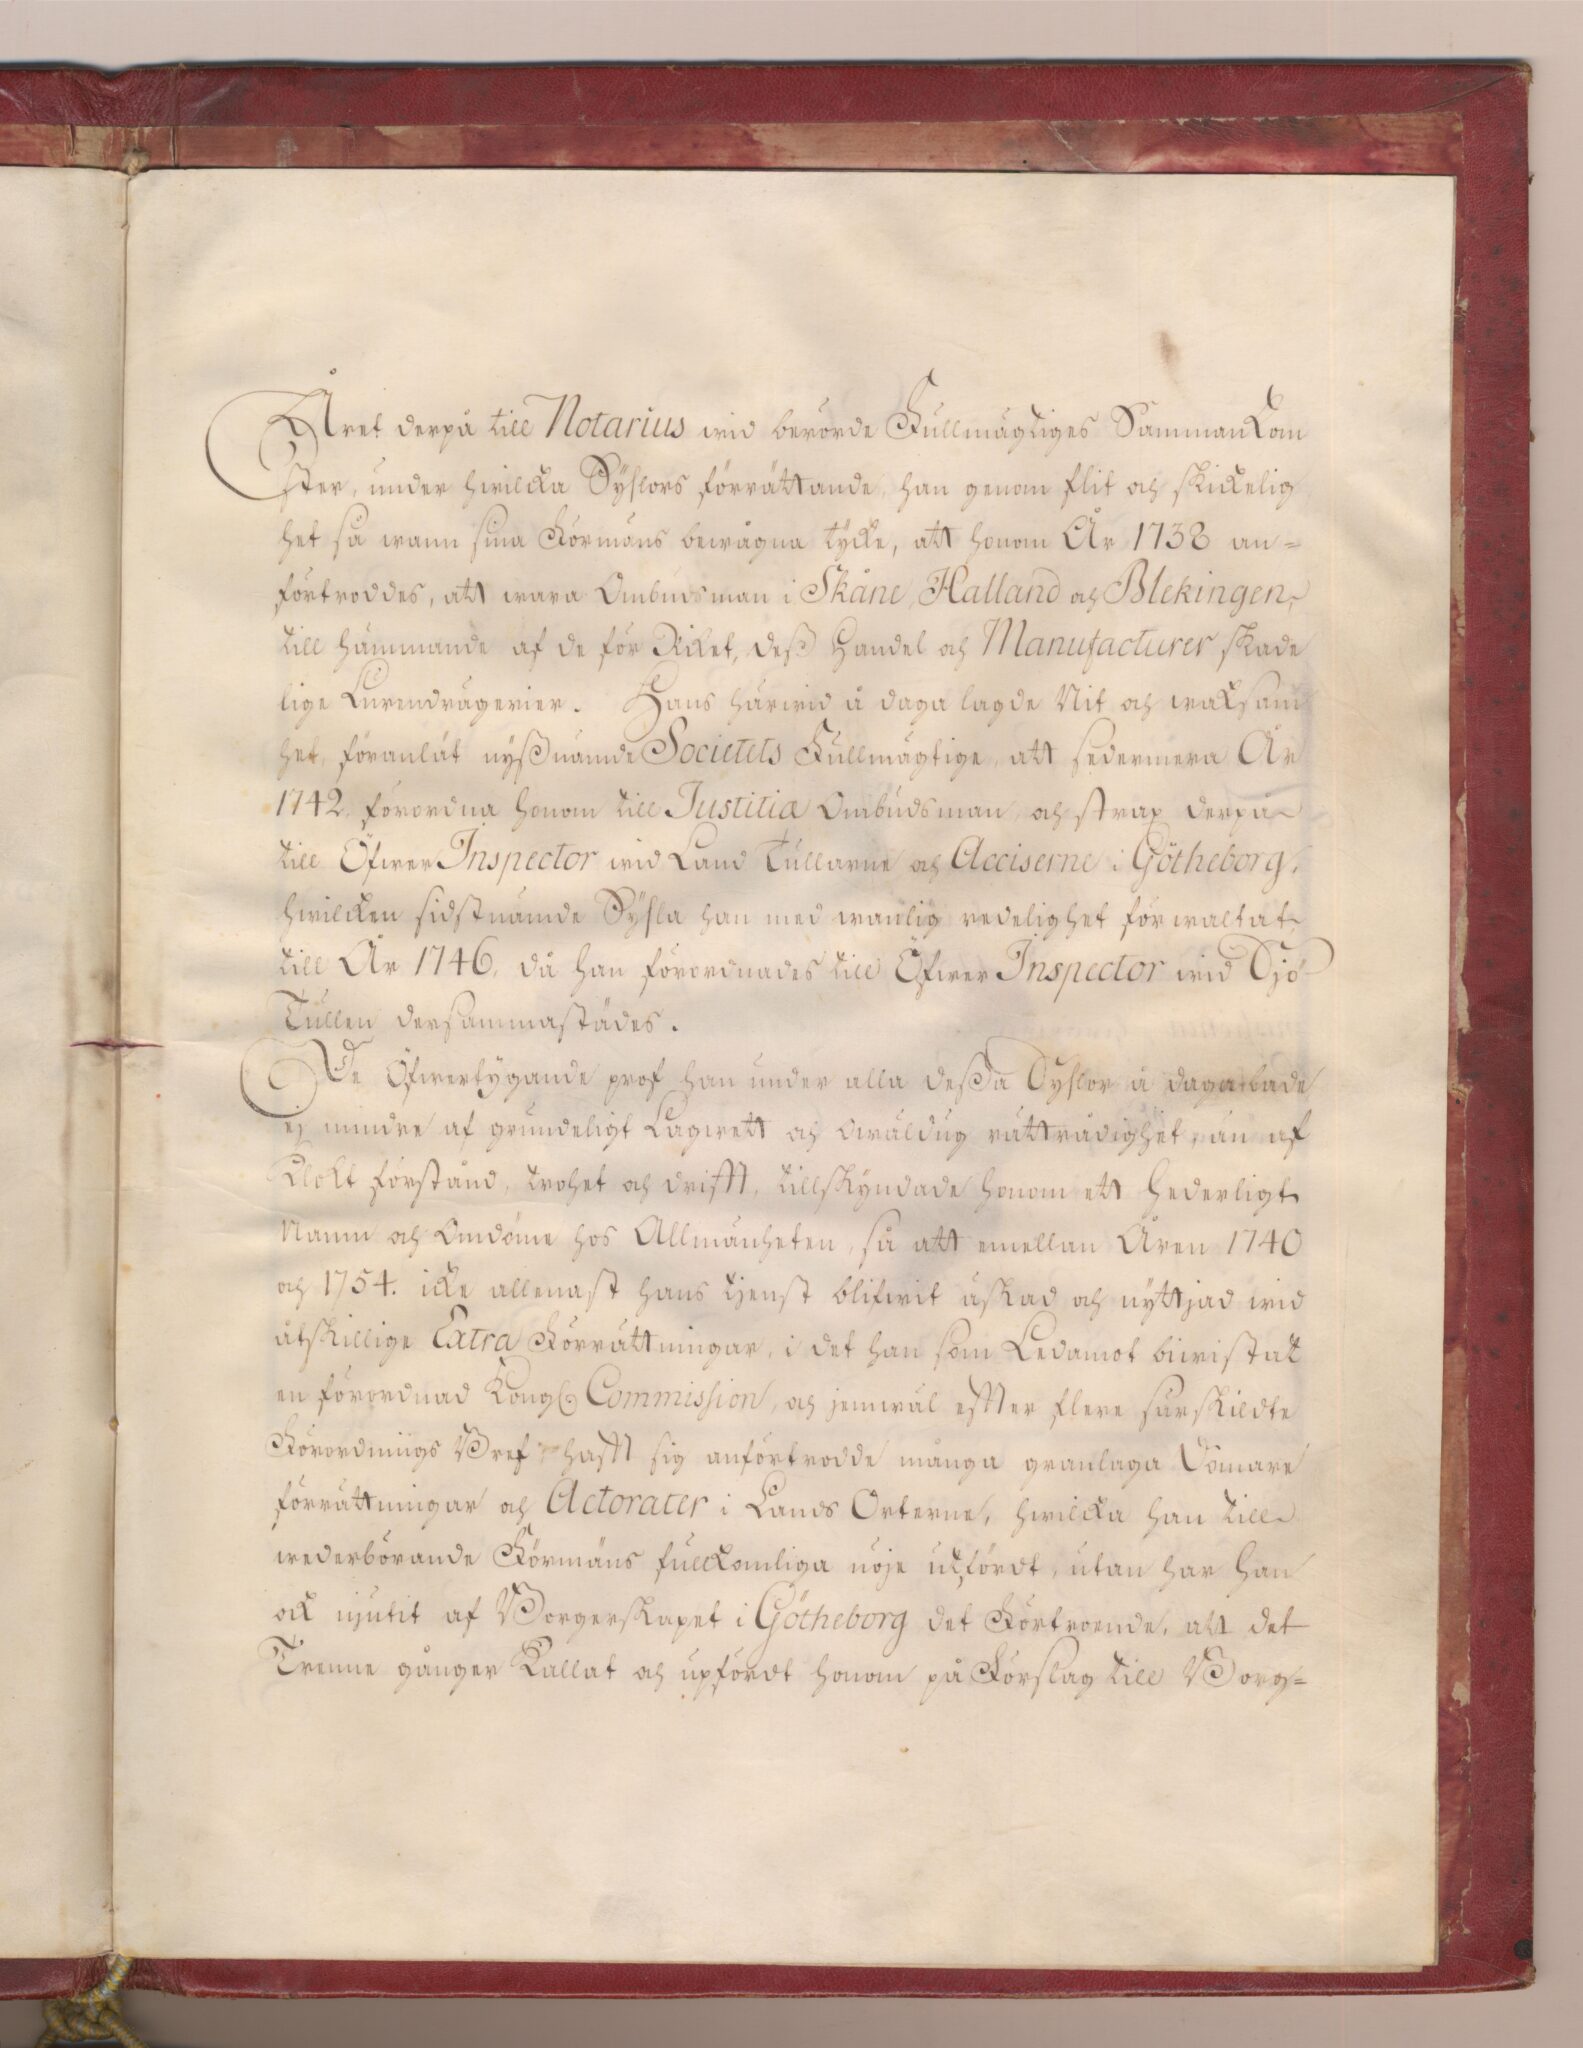 Året derpå till Notarius wid berörde Fullmägtiges Sammankom
ster, under hwilcka Sÿßlors förrättande, han genom flit och skickelig
het så wann sina Förmäns bewågna tÿcke, att honom År 1738 an=
förtroddes, att wara Ombudsman i Skåne, Halland och Blekingen,
till hämmande af de för Riket, deß Handel och Manufacturer skade
lige Lurendrägerier. Hans härwid å daga lagde Nit och waksam
het, föranlät nÿßnämde Societets Fullmägtige, att sedermera År
1742. förordna honom till Justitiæ Ombudsman, och strax derpå
till Öfwer Inspector wid Land Tullarne och Acciserne i Götheborg,
hwilcken sidstnämde Sÿßla han med wanlig redelighet förwaltat
till År 1746, då han förordnades till Öfwer Inspector wid Sjö
Tullen dersammastädes.
De Öfwertÿgande prof han under alla deßa Sÿßlor å daga lade
ej mindre af grundeligt Lagwett och Owäldug rättrådighet, än af
Klokt förstånd, trohet och drifft, tillskÿndade honom ett Hederligt
Namn och Omdöme hos Allmänheten, så att emellan Åren 1740
och 1754. icke allenast hans tjenst blifwit äskad och nÿttjad wid
åtskillige Extra Förrättningar, i det han som Ledamot biwistat
en förordnad Kongl. Commission, och jemwäl effter flere särskildte
Förordnings Bref hafft sig anförtrodde många granlaga Domare
förrättningar och Actorater i Lands Orterne, hwilcka han till
wederbörande Förmäns fullkomliga nöje utfördt, utan har han
ock njutit af Borgerskapet i Götheborg det Förtroende, att det
Trenne gånger kallat och upfördt honom på Förslag till Borg=